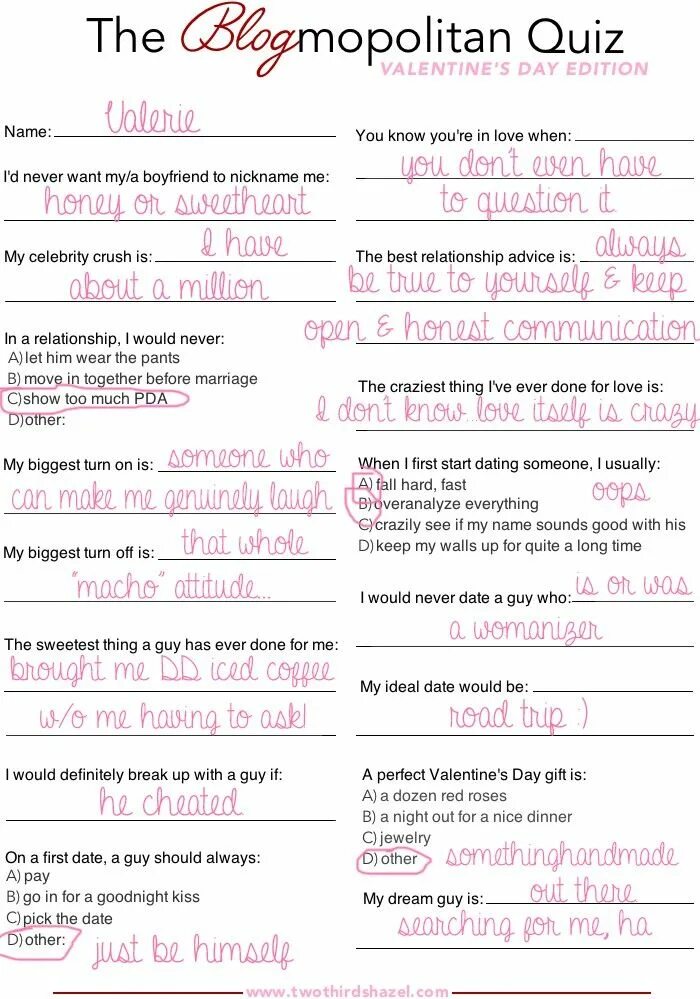 The Blogmopolitan Quiz
VALENTINE'S DAY EDITION
Name: Valerie
I'd never want my/a boyfriend to nickname me:
honey or sweetheart
My celebrity crush is: I have
about a million
In a relationship, I would never:
A) let him wear the pants
B) move in together before marriage
C) show too much PDA
D) other:
My biggest turn on is: someone who
can make me genuinely laugh
My biggest turn off is: that whole
"macho" attitude...
The sweetest thing a guy has ever done for me:
brought me DD iced coffee
w/o me having to ask!
I would definitely break up with a guy if:
he cheated
On a first date, a guy should always:
A) pay
B) go in for a goodnight kiss
C) pick the date
D) other: just be himself
You know you're in love when:
you don't even have
to question it.
The best relationship advice is: always
be true to yourself & keep
open & honest communication
The craziest thing I've ever done for love is:
I don't know..love itself is crazy
When I first start dating someone, I usually:
A) fall hard, fast
B) overanalyze everything oops
C) crazily see if my name sounds good with his
D) keep my walls up for quite a long time
I would never date a guy who: is or was
a womanizer
My ideal date would be:
road trip :)
A perfect Valentine's Day gift is:
A) a dozen red roses
B) a night out for a nice dinner
C) jewelry
D) other somethinghandmade
My dream guy is: out there
searching for me, ha
www.twothirdshazel.com